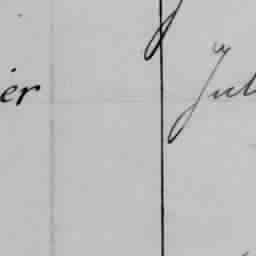 er Jul